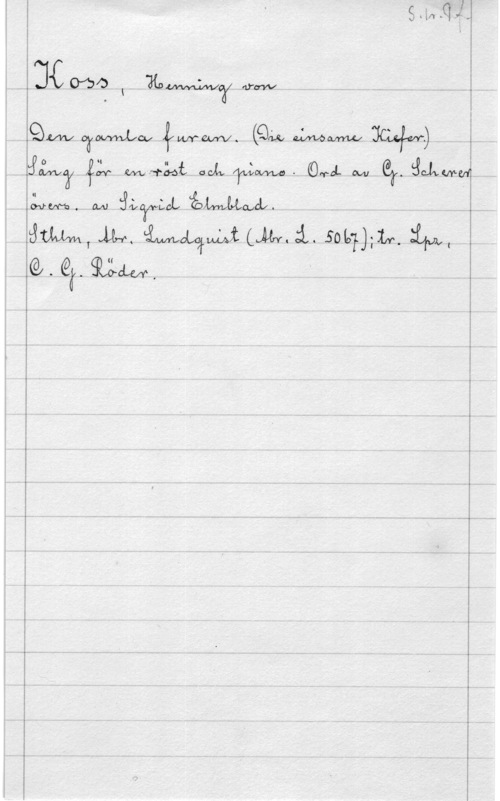 Koss, Henning von
Den gamla furan. (Die einsame Kiefer.)
Sång för en röst och piano. Ord av G. Scherer
övers. av Sigrid Elmblad.
Sthlm, Abr. Lundquist (Abr. L. 5067); tr. Lpz,
C. G. Röder.